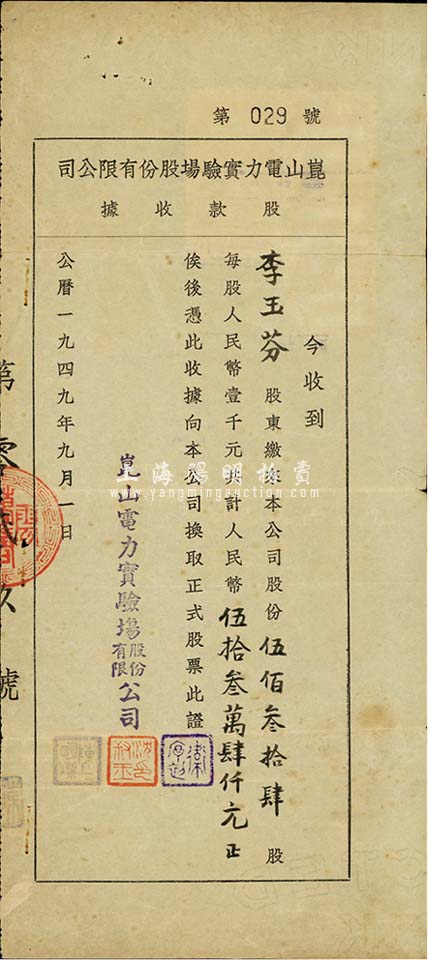 第 029 號
崑山電力實驗場股份有限公司
股款收據
今收到
李玉芬 股東繳來本公司股份 伍佰叁拾肆 股
每股人民幣壹千元共計人民幣 伍拾叁萬肆仟元正
俟後憑此收據向本公司換取正式股票此證
崑山電力實驗場股份有限公司
公曆一九四九年九月一日
第零貳玖號
上海陽明拍賣
www.yangmingauction.com